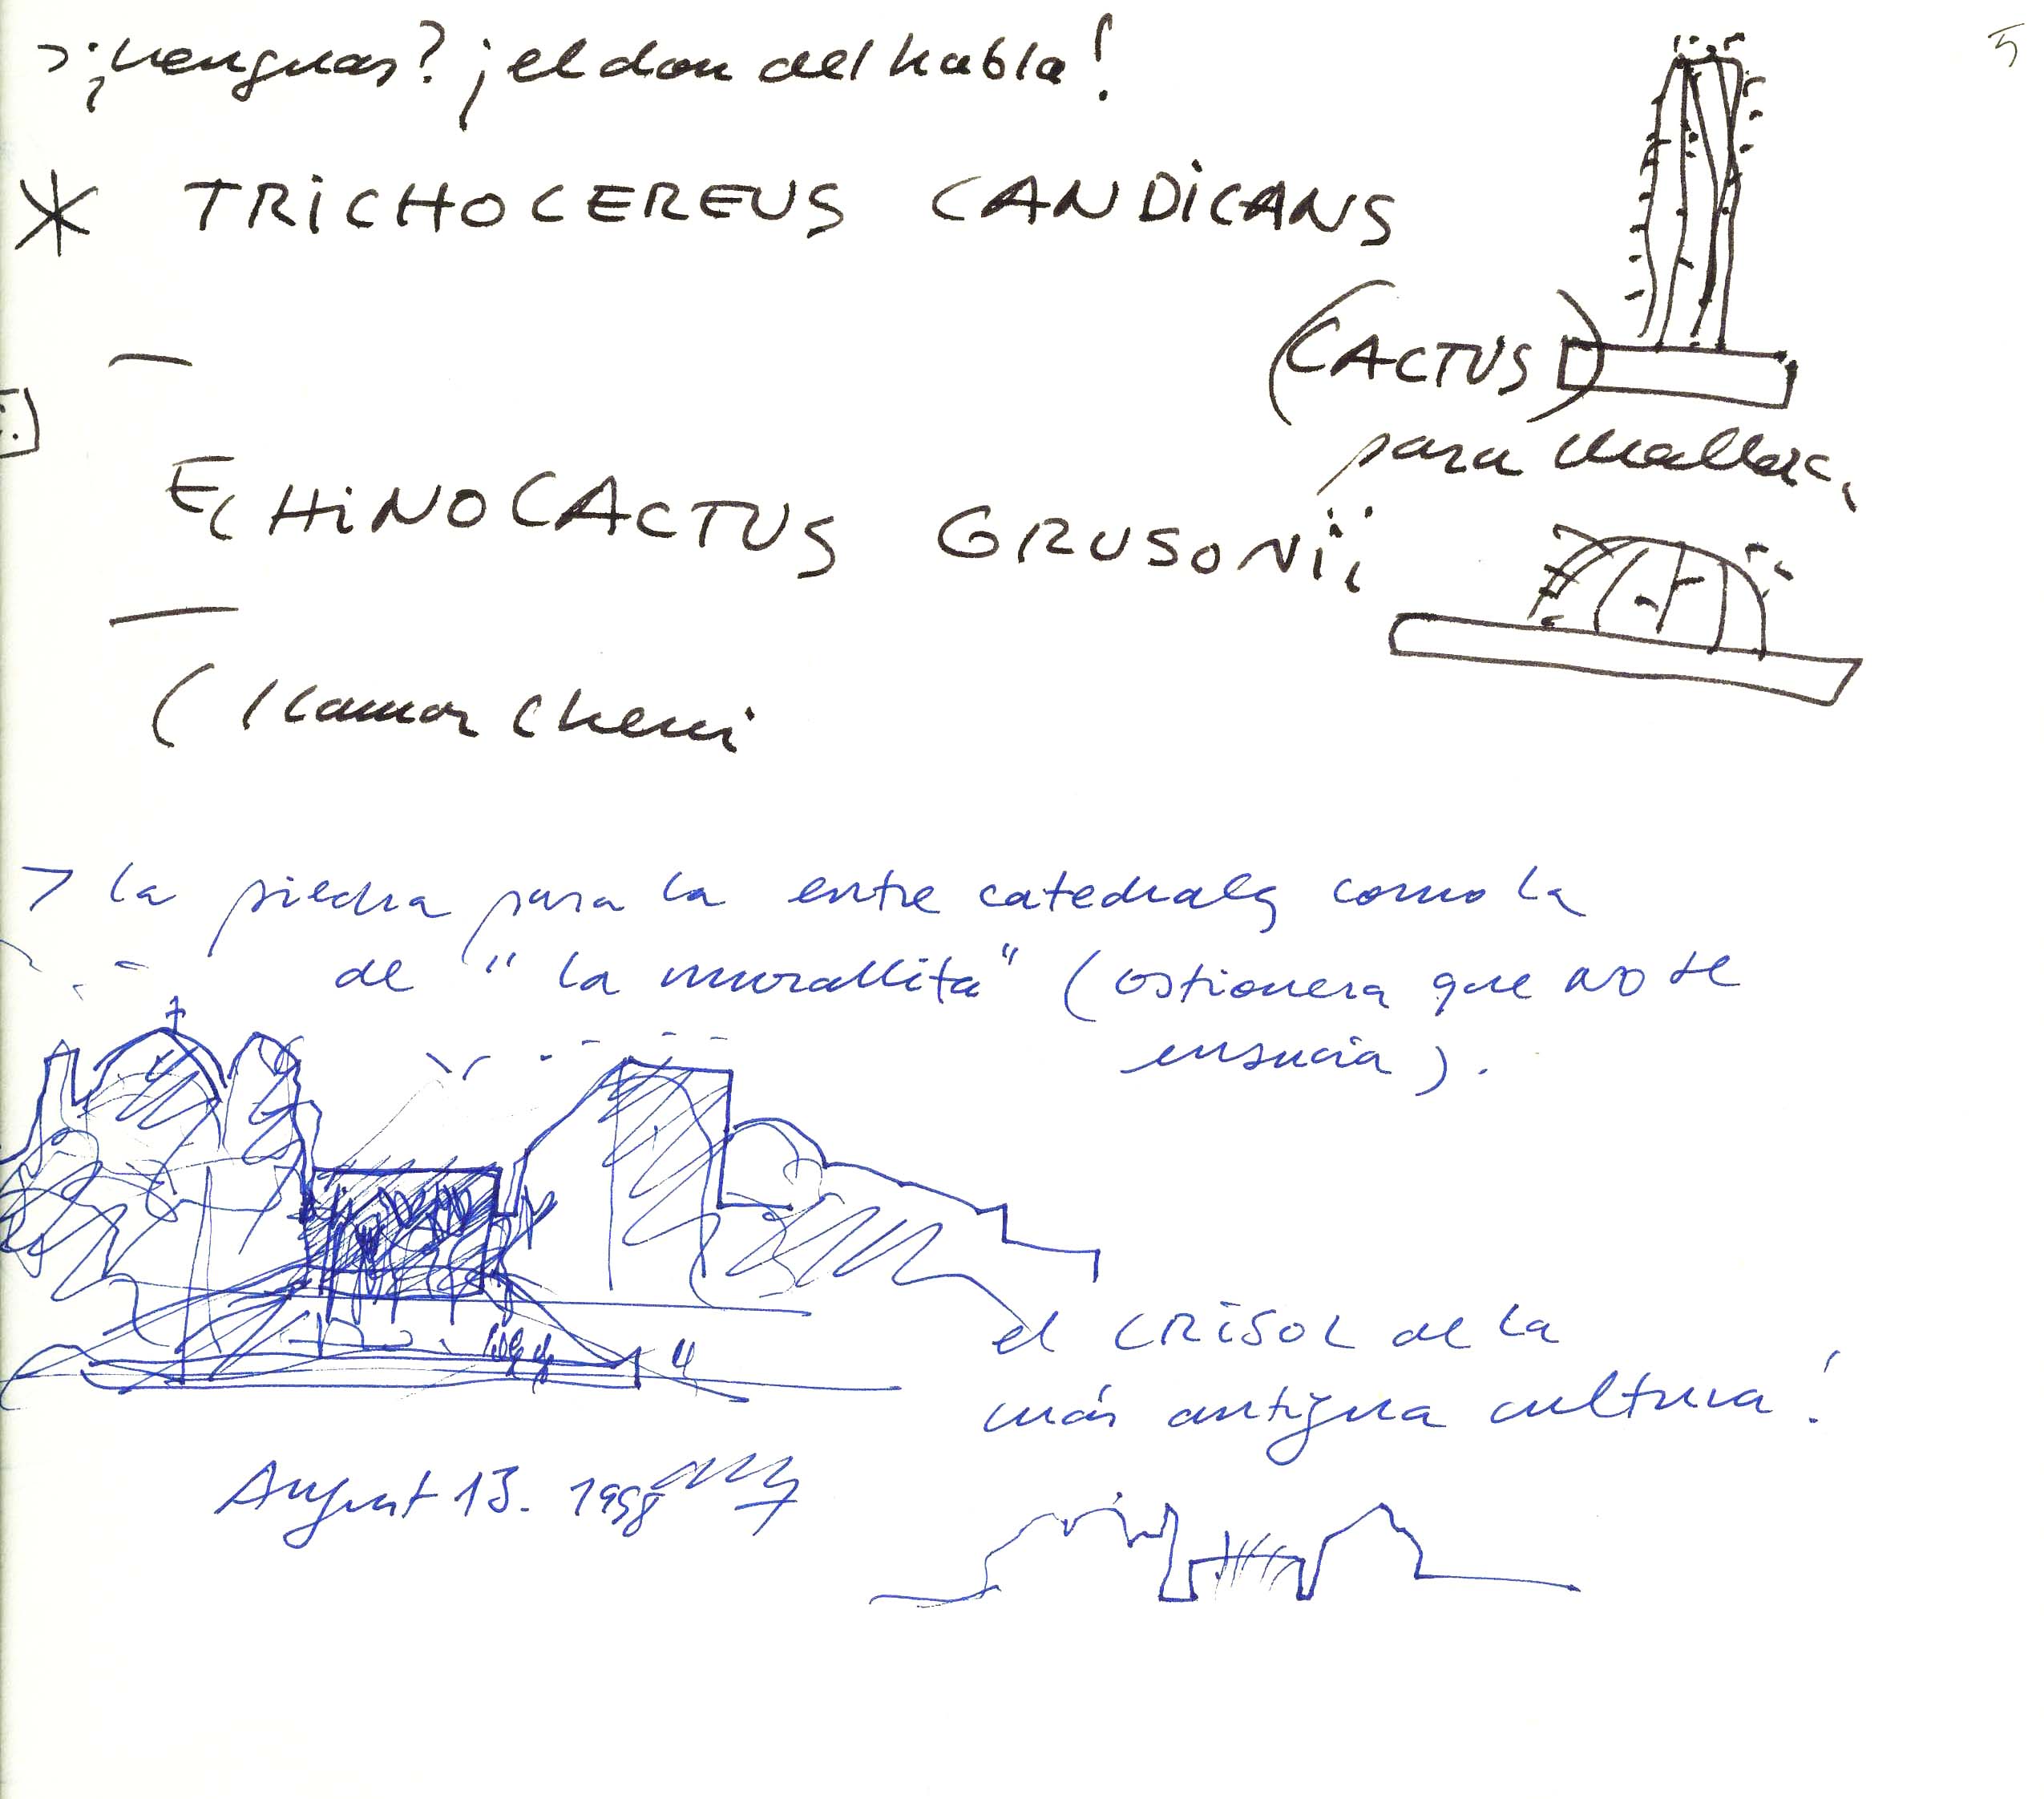 > ¿Lenguas? ¡el don del habla!
5
* TRiCHOCEREUS CANDiCANS
(CACTUS)
para Mallorca
ECHiNOCACTUS GRUSONii
( llamar Chemi
> la piedra para la entre catedrales como la
de "la murallita" (ostionera que NO se
ensucia).
el CRiSOL de la
más antigua cultura!
August 13. 1998